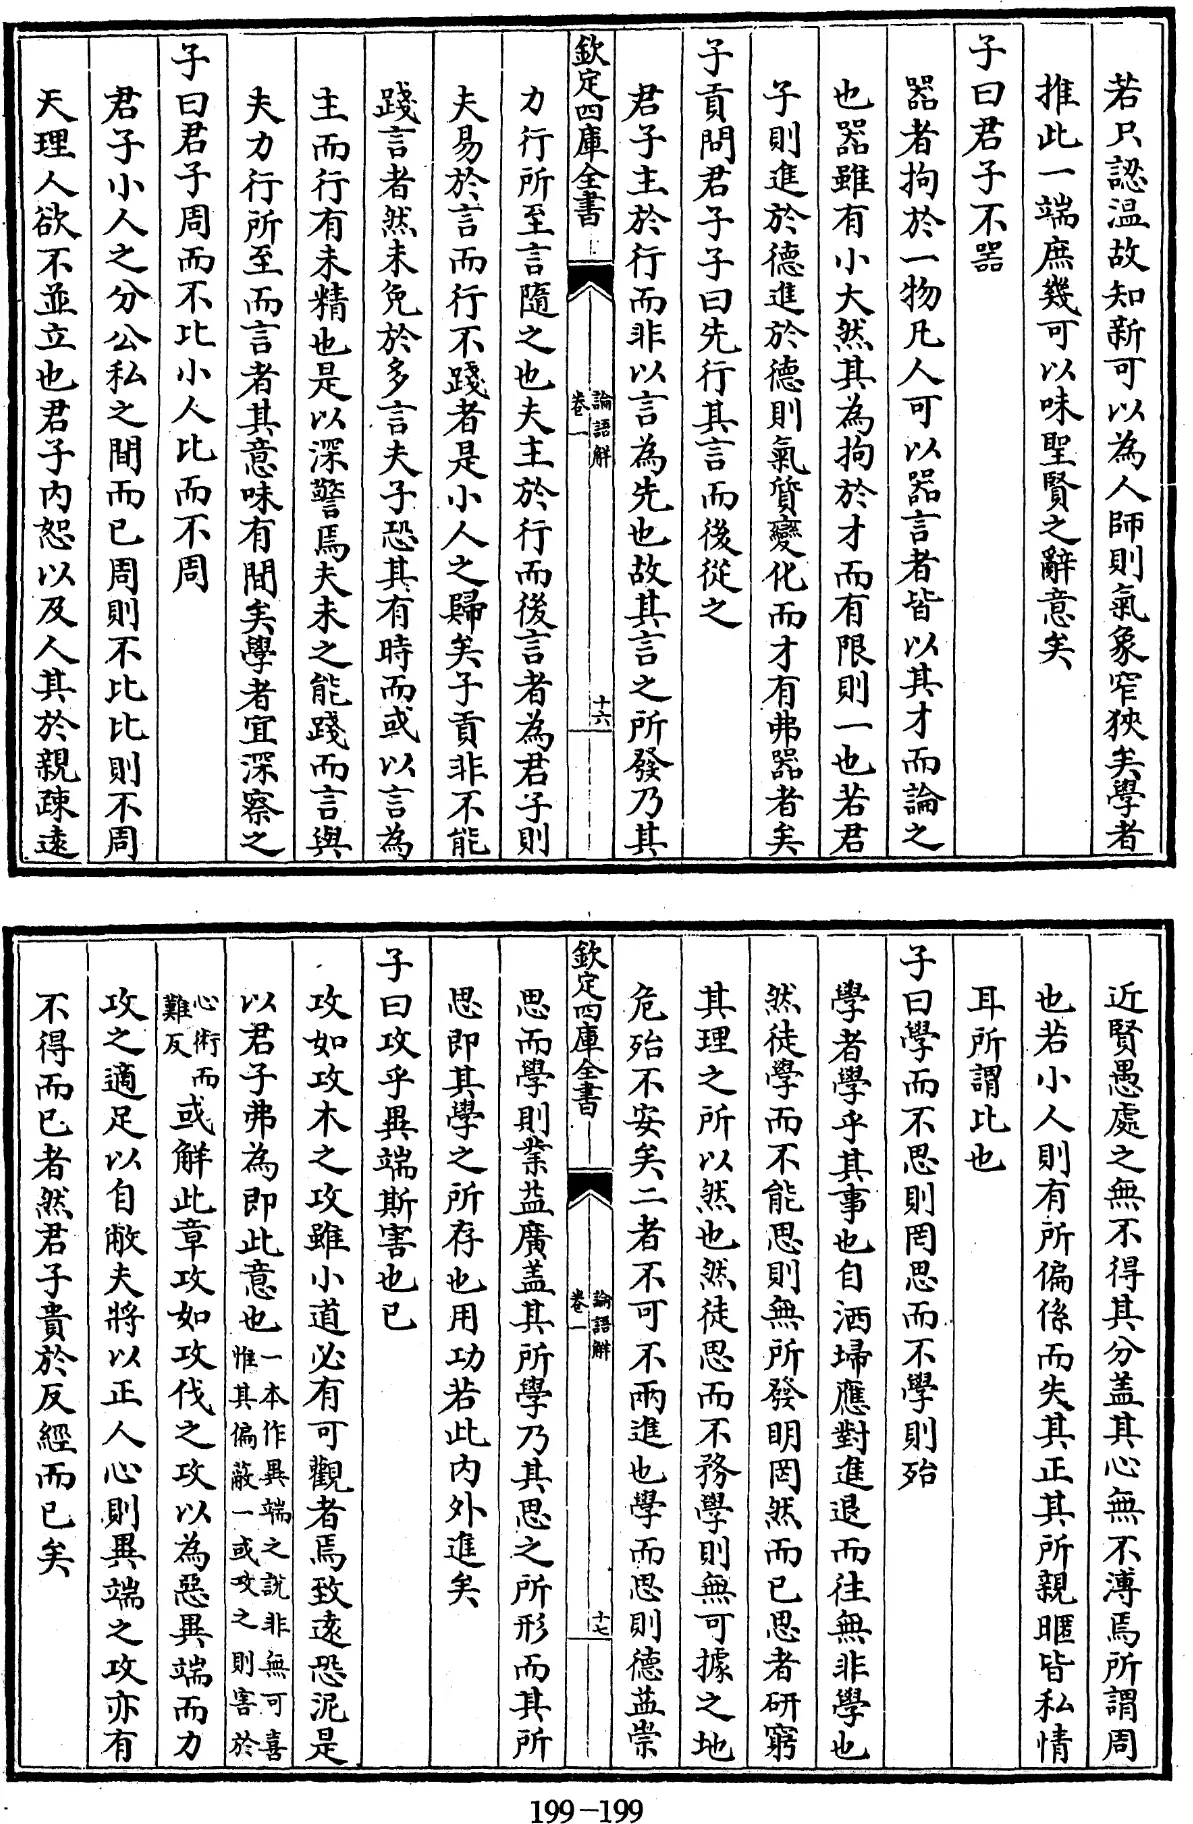 若只認温故知新可以為人師則氣象窄狹矣學者
推此一端庶幾可以味聖賢之辭意矣
子曰君子不器
器者拘於一物凡人可以器言者皆以其才而論之
也器雖有小大然其為拘於才而有限則一也若君
子則進於德進於德則氣質變化而才有弗器者矣
子貢問君子子曰先行其言而後從之
君子主於行而非以言為先也故其言之所發乃其
欽定四庫全書
論語解
卷一
十六
力行所至言隨之也夫主於行而後言者為君子則
夫易於言而行不踐者是小人之歸矣子貢非不能
踐言者然未免於多言夫子恐其有時而或以言為
主而行有未精也是以深警焉夫未之能踐而言與
夫力行所至而言者其意味有間矣學者宜深察之
子曰君子周而不比小人比而不周
君子小人之分公私之間而已周則不比比則不周
天理人欲不並立也君子内恕以及人其於親疎遠
近賢愚處之無不得其分盖其心無不溥焉所謂周
也若小人則有所偏係而失其正其所親暱皆私情
耳所謂比也
子曰學而不思則罔思而不學則殆
學者學乎其事也自洒埽應對進退而往無非學也
然徒學而不能思則無所發明罔然而已思者研窮
其理之所以然也然徒思而不務學則無可據之地
危殆不安矣二者不可不兩進也學而思則德益崇
欽定四庫全書
論語解
卷一
十七
思而學則業益廣盖其所學乃其思之所形而其所
思即其學之所存也用功若此内外進矣
子曰攻乎異端斯害也已
攻如攻木之攻雖小道必有可觀者焉致遠恐泥是
以君子弗為即此意也一本作異端之說非無可喜
惟其偏蔽一或攻之則害於
心術而
難反
或解此章攻如攻伐之攻以為惡異端而力
攻之適足以自敝夫將以正人心則異端之攻亦有
不得而已者然君子貴於反經而已矣
199-199